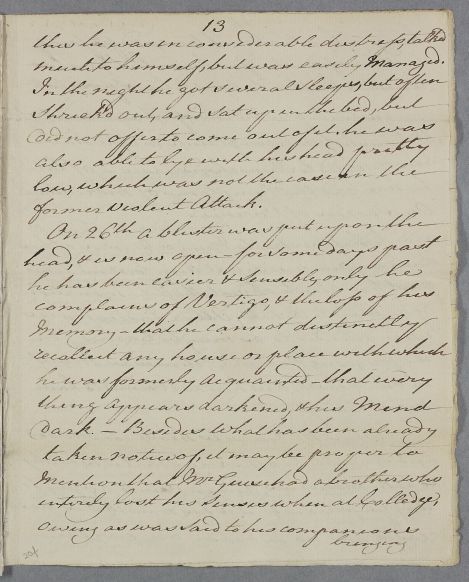 13
thus he was in considerable distress, talk'd
much to himself, but was easily Managed.
In the night he got several sleeps, but often
Shriek'd out, and sat up in the bed, but
did not offer to come out of it. he was
also able to lye with his head pretty
low, which was not the case in the
former violent Attack.
On 26th a blister was put upon the
head, & is now open - for some days past
he has been easier & sensible, only he
complains of Vertigo, & the loss of his
Memory - that he cannot distinctly
recollect any house or place with which
he was formerly Acquainted - that every
thing appears darkened, & his Mind
dark. - Besides what has been already
taken notice of, it may be proper to
Mention that Mr had a brother who
entirely lost his senses when at Colledge,
owing as was said to his companions
bringing